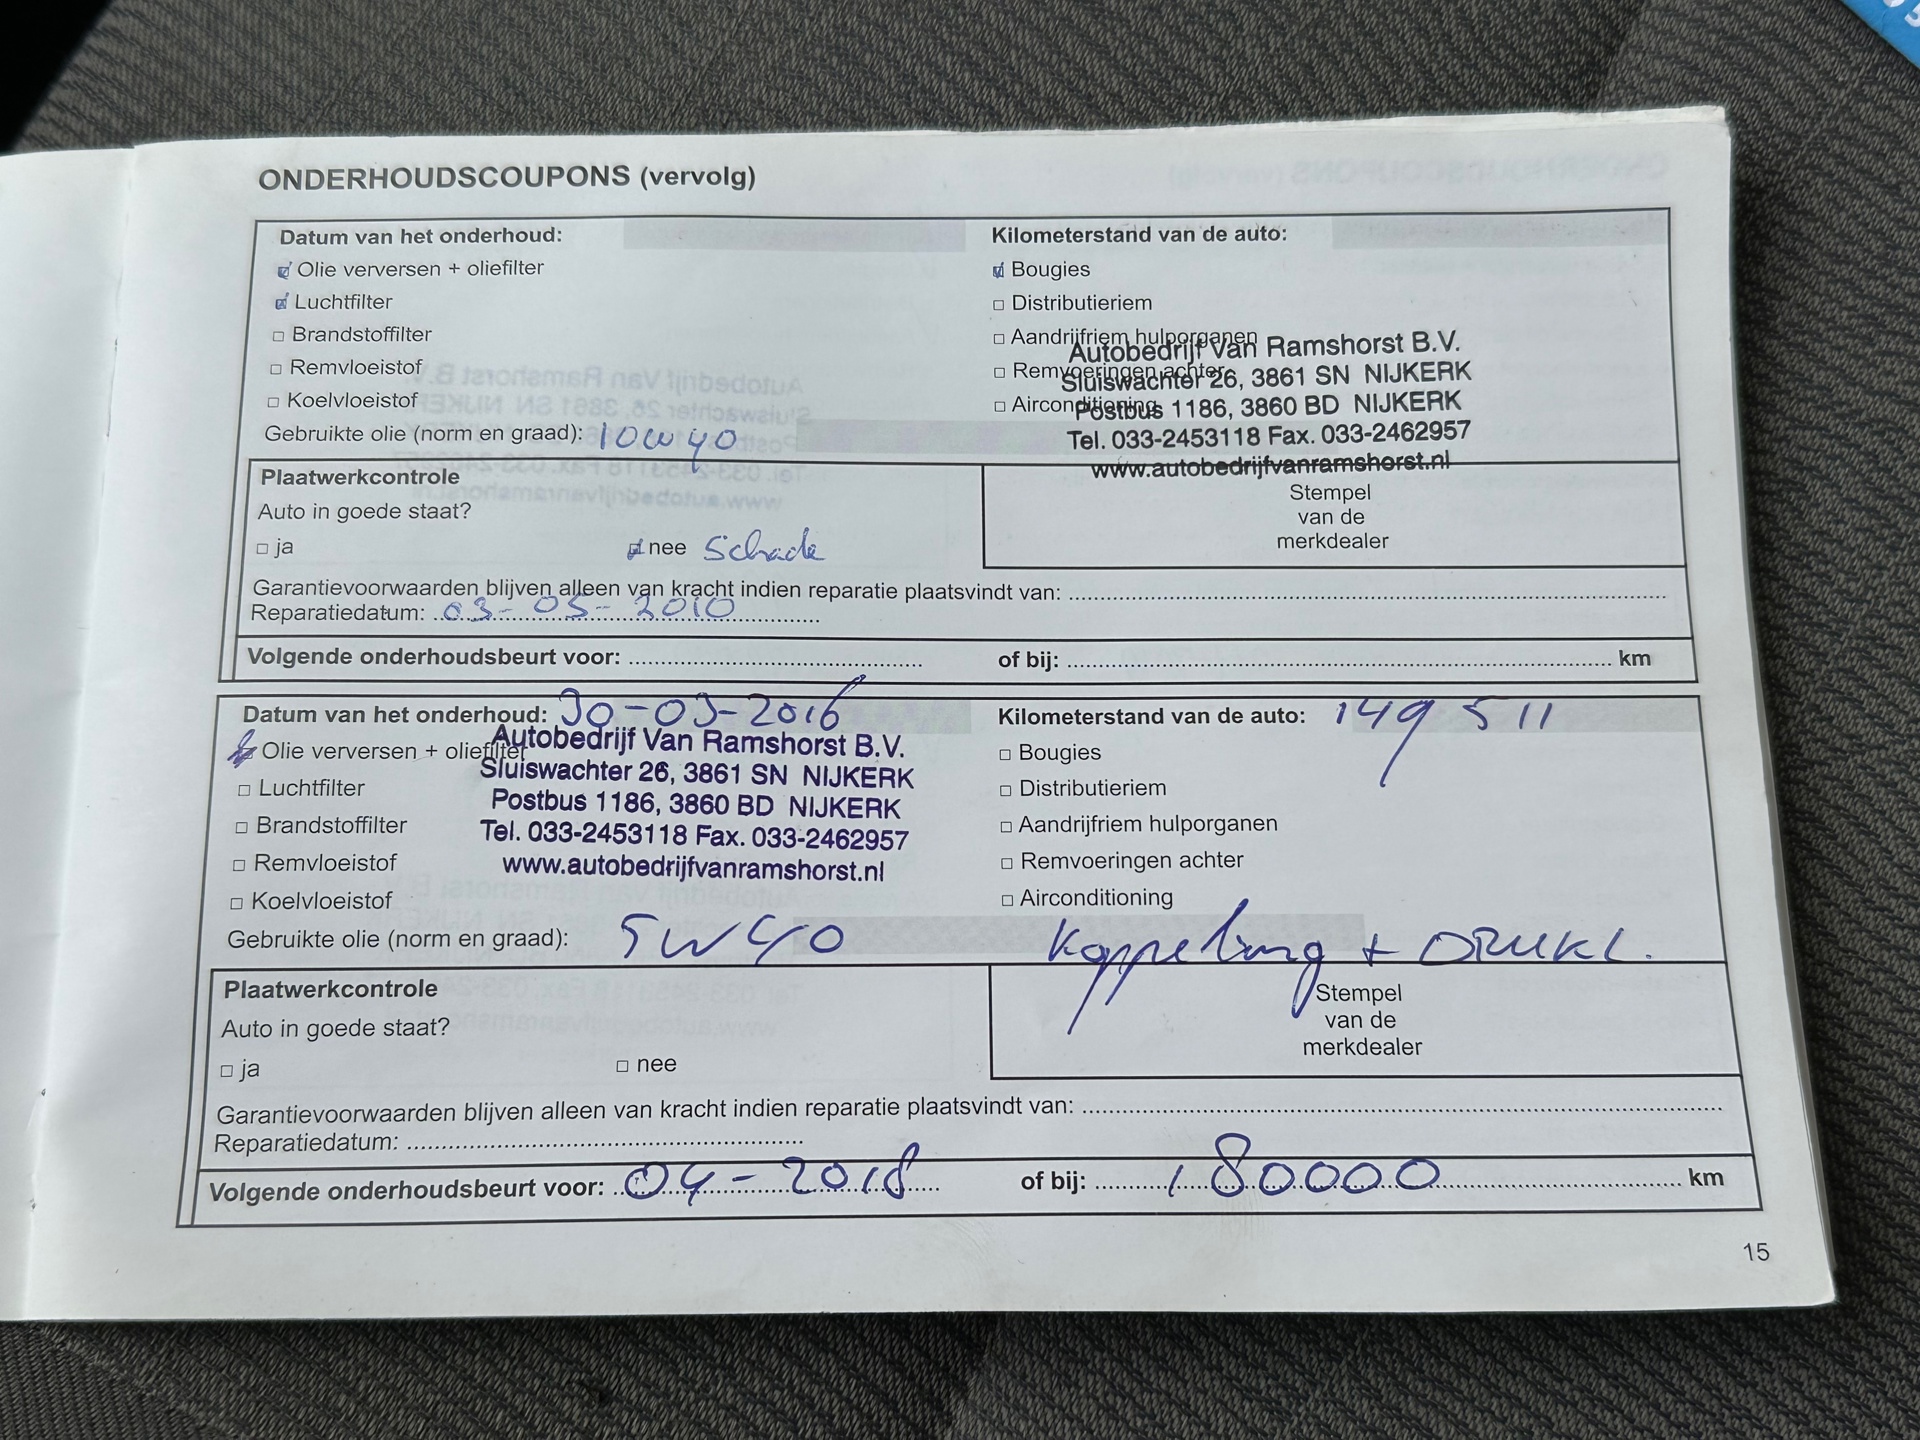 ONDERHOUDSCOUPONS (vervolg)
Datum van het onderhoud:
Kilometerstand van de auto:
Olie verversen + oliefilter
Bougies
Luchtfilter
Distributieriem
Brandstoffilter
Aandrijfriem hulporganen
Remvloeistof
Remvoeringen achter
Koelvloeistof
Airconditioning
Autobedrijf Van Ramshorst B.V.
Sluiswachter 26, 3861 SN NIJKERK
Postbus 1186, 3860 BD NIJKERK
Tel. 033-2453118 Fax. 033-2462957
www.autobedrijfvanramshorst.nl
Gebruikte olie (norm en graad): 10W40
Plaatwerkcontrole
Auto in goede staat?
ja
nee Schade
Stempel
van de
merkdealer
Garantievoorwaarden blijven alleen van kracht indien reparatie plaatsvindt van:
Reparatiedatum: 03-05-2010
Volgende onderhoudsbeurt voor:
of bij: km
Datum van het onderhoud: 30-03-2016
Kilometerstand van de auto: 149 511
Olie verversen + oliefilter
Bougies
Luchtfilter
Distributieriem
Brandstoffilter
Aandrijfriem hulporganen
Remvloeistof
Remvoeringen achter
Koelvloeistof
Airconditioning
Autobedrijf Van Ramshorst B.V.
Sluiswachter 26, 3861 SN NIJKERK
Postbus 1186, 3860 BD NIJKERK
Tel. 033-2453118 Fax. 033-2462957
www.autobedrijfvanramshorst.nl
Gebruikte olie (norm en graad): 5W40
Koppeling + DRUKL.
Plaatwerkcontrole
Auto in goede staat?
ja
nee
Stempel
van de
merkdealer
Garantievoorwaarden blijven alleen van kracht indien reparatie plaatsvindt van:
Reparatiedatum:
Volgende onderhoudsbeurt voor: 04-2018
of bij: 180000 km
15